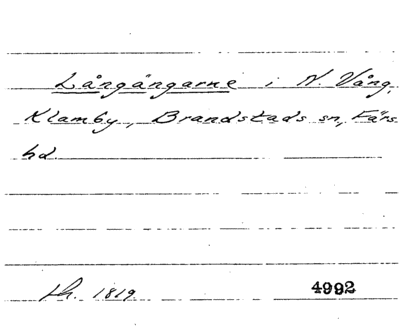 Långängarne i N. Vång,
Klamby, Brandstads sn, Färs
hd
lh. 1819. 4992